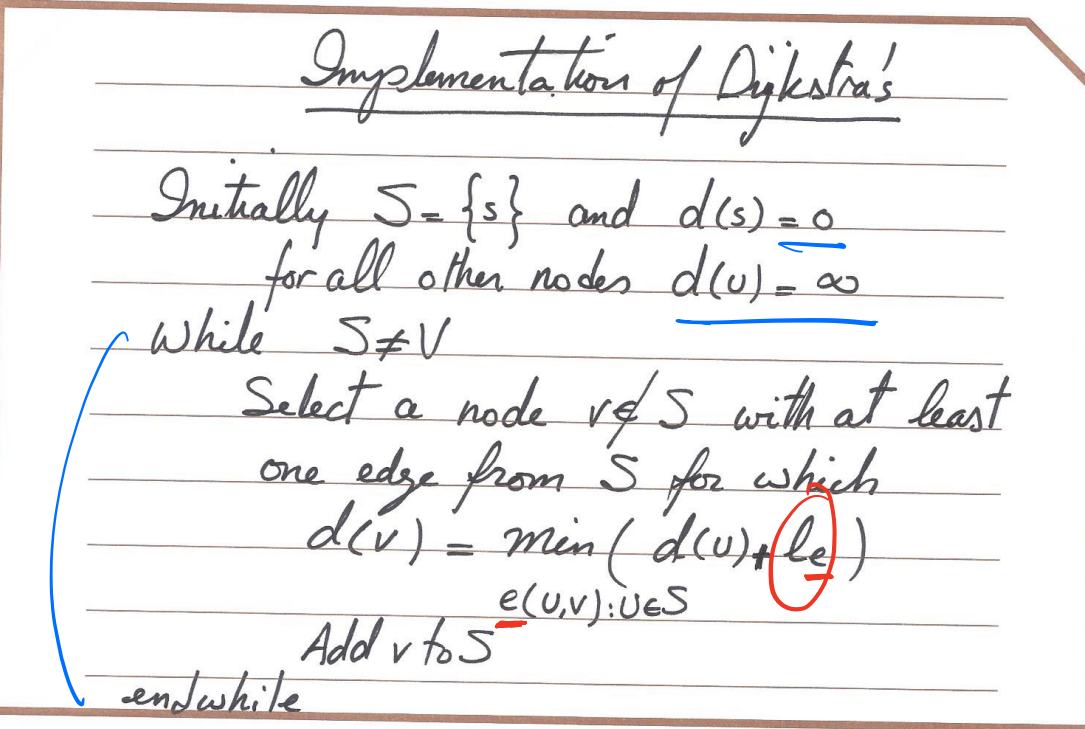 Implementation of Dijkstra's
Initially S = {s} and d(s) = 0
for all other nodes d(u) = ∞
While S ≠ V
Select a node v ∉ S with at least
one edge from S for which
d(v) = min ( d(u) + le )
e(u,v):u∈S
Add v to S
endwhile